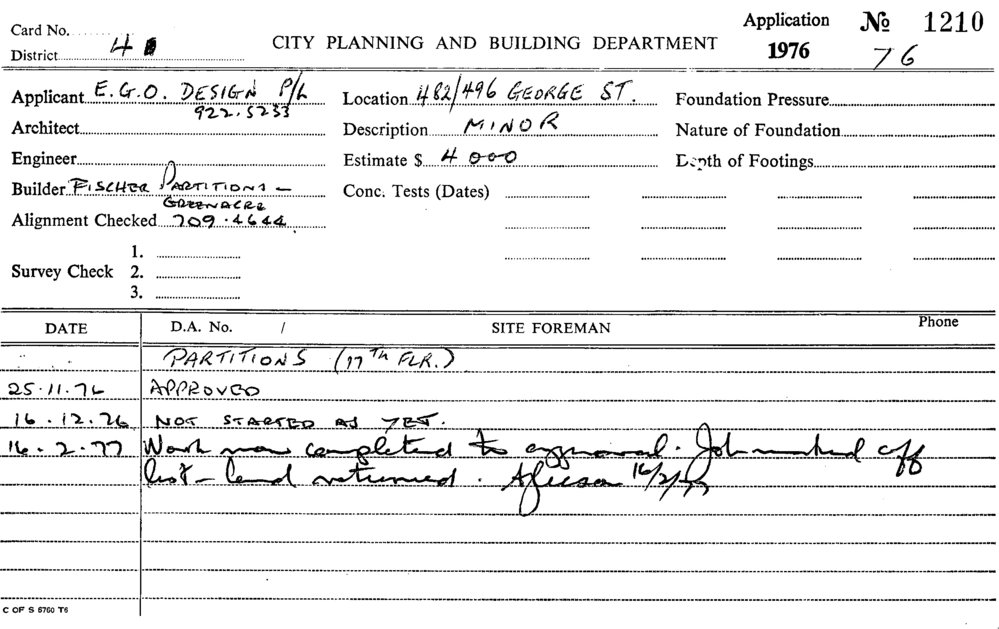 Card No.
District 4
CITY PLANNING AND BUILDING DEPARTMENT
Application No 1210
1976 76
Applicant E.G.O. DESIGN P/L
922.5233
Location 482/496 GEORGE ST.
Foundation Pressure
Architect
Description MINOR
Nature of Foundation
Engineer
Estimate $ 4000
Depth of Footings
Builder FISCHER PARTITIONS –
GREENACRE
Conc. Tests (Dates)
Alignment Checked 709.4644
Survey Check 1.
2.
3.
DATE D.A. No. / SITE FOREMAN Phone
PARTITIONS (17TH FLR.)
25.11.76 APPROVED
16.12.76 NOT STARTED AS YET.
16.2.77 Work now completed to approval. Job marked off
list – returned. 16/2/77
C OF S 6760 T6